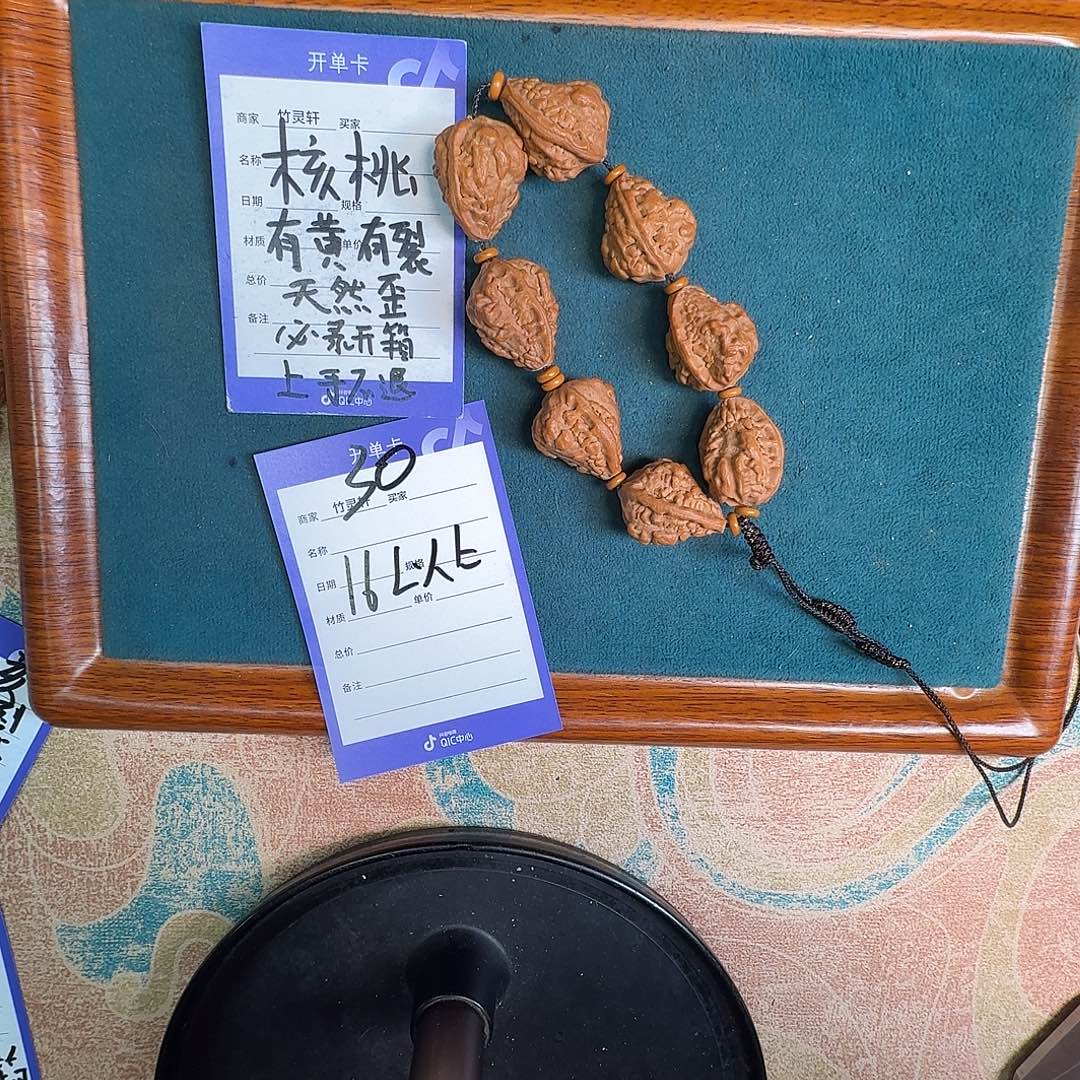 开单卡
商家 竹灵轩 买家
名称 核桃
日期 规格
材质 有黄有裂 单价
总价 天然歪
备注 必录开箱
上手不退
QIC中心
开单卡
30
商家 竹灵轩 买家
名称
日期 规格
16
材质 单价
总价
备注
抖音电商
QIC中心